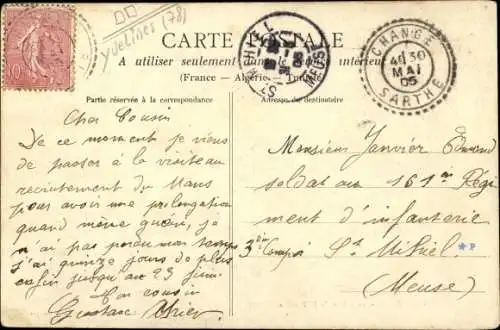 Yvelines (78)
CARTE POSTALE
A utiliser seulement dans le régime intérieur
(France - Algérie - Tunisie)
Partie réservée à la correspondance
Adresse du destinataire
CHANGÉ
30
MAI
05
SARTHE
ST MIHIEL
MEUSE
10
Cher Cousin
Je ce moment je viens
de passer à la visite au
recrutement du Mans
pour avoir une prolongation
quand même
j'ai pas perdu mon temps
j'ai quinze jours de plus
enfin jusqu'au 23 juin
Ton cousin
Gustave
Monsieur Janvier
soldat au 161è Régi
ment d'infanterie
3è Comp St Mihiel
(Meuse)